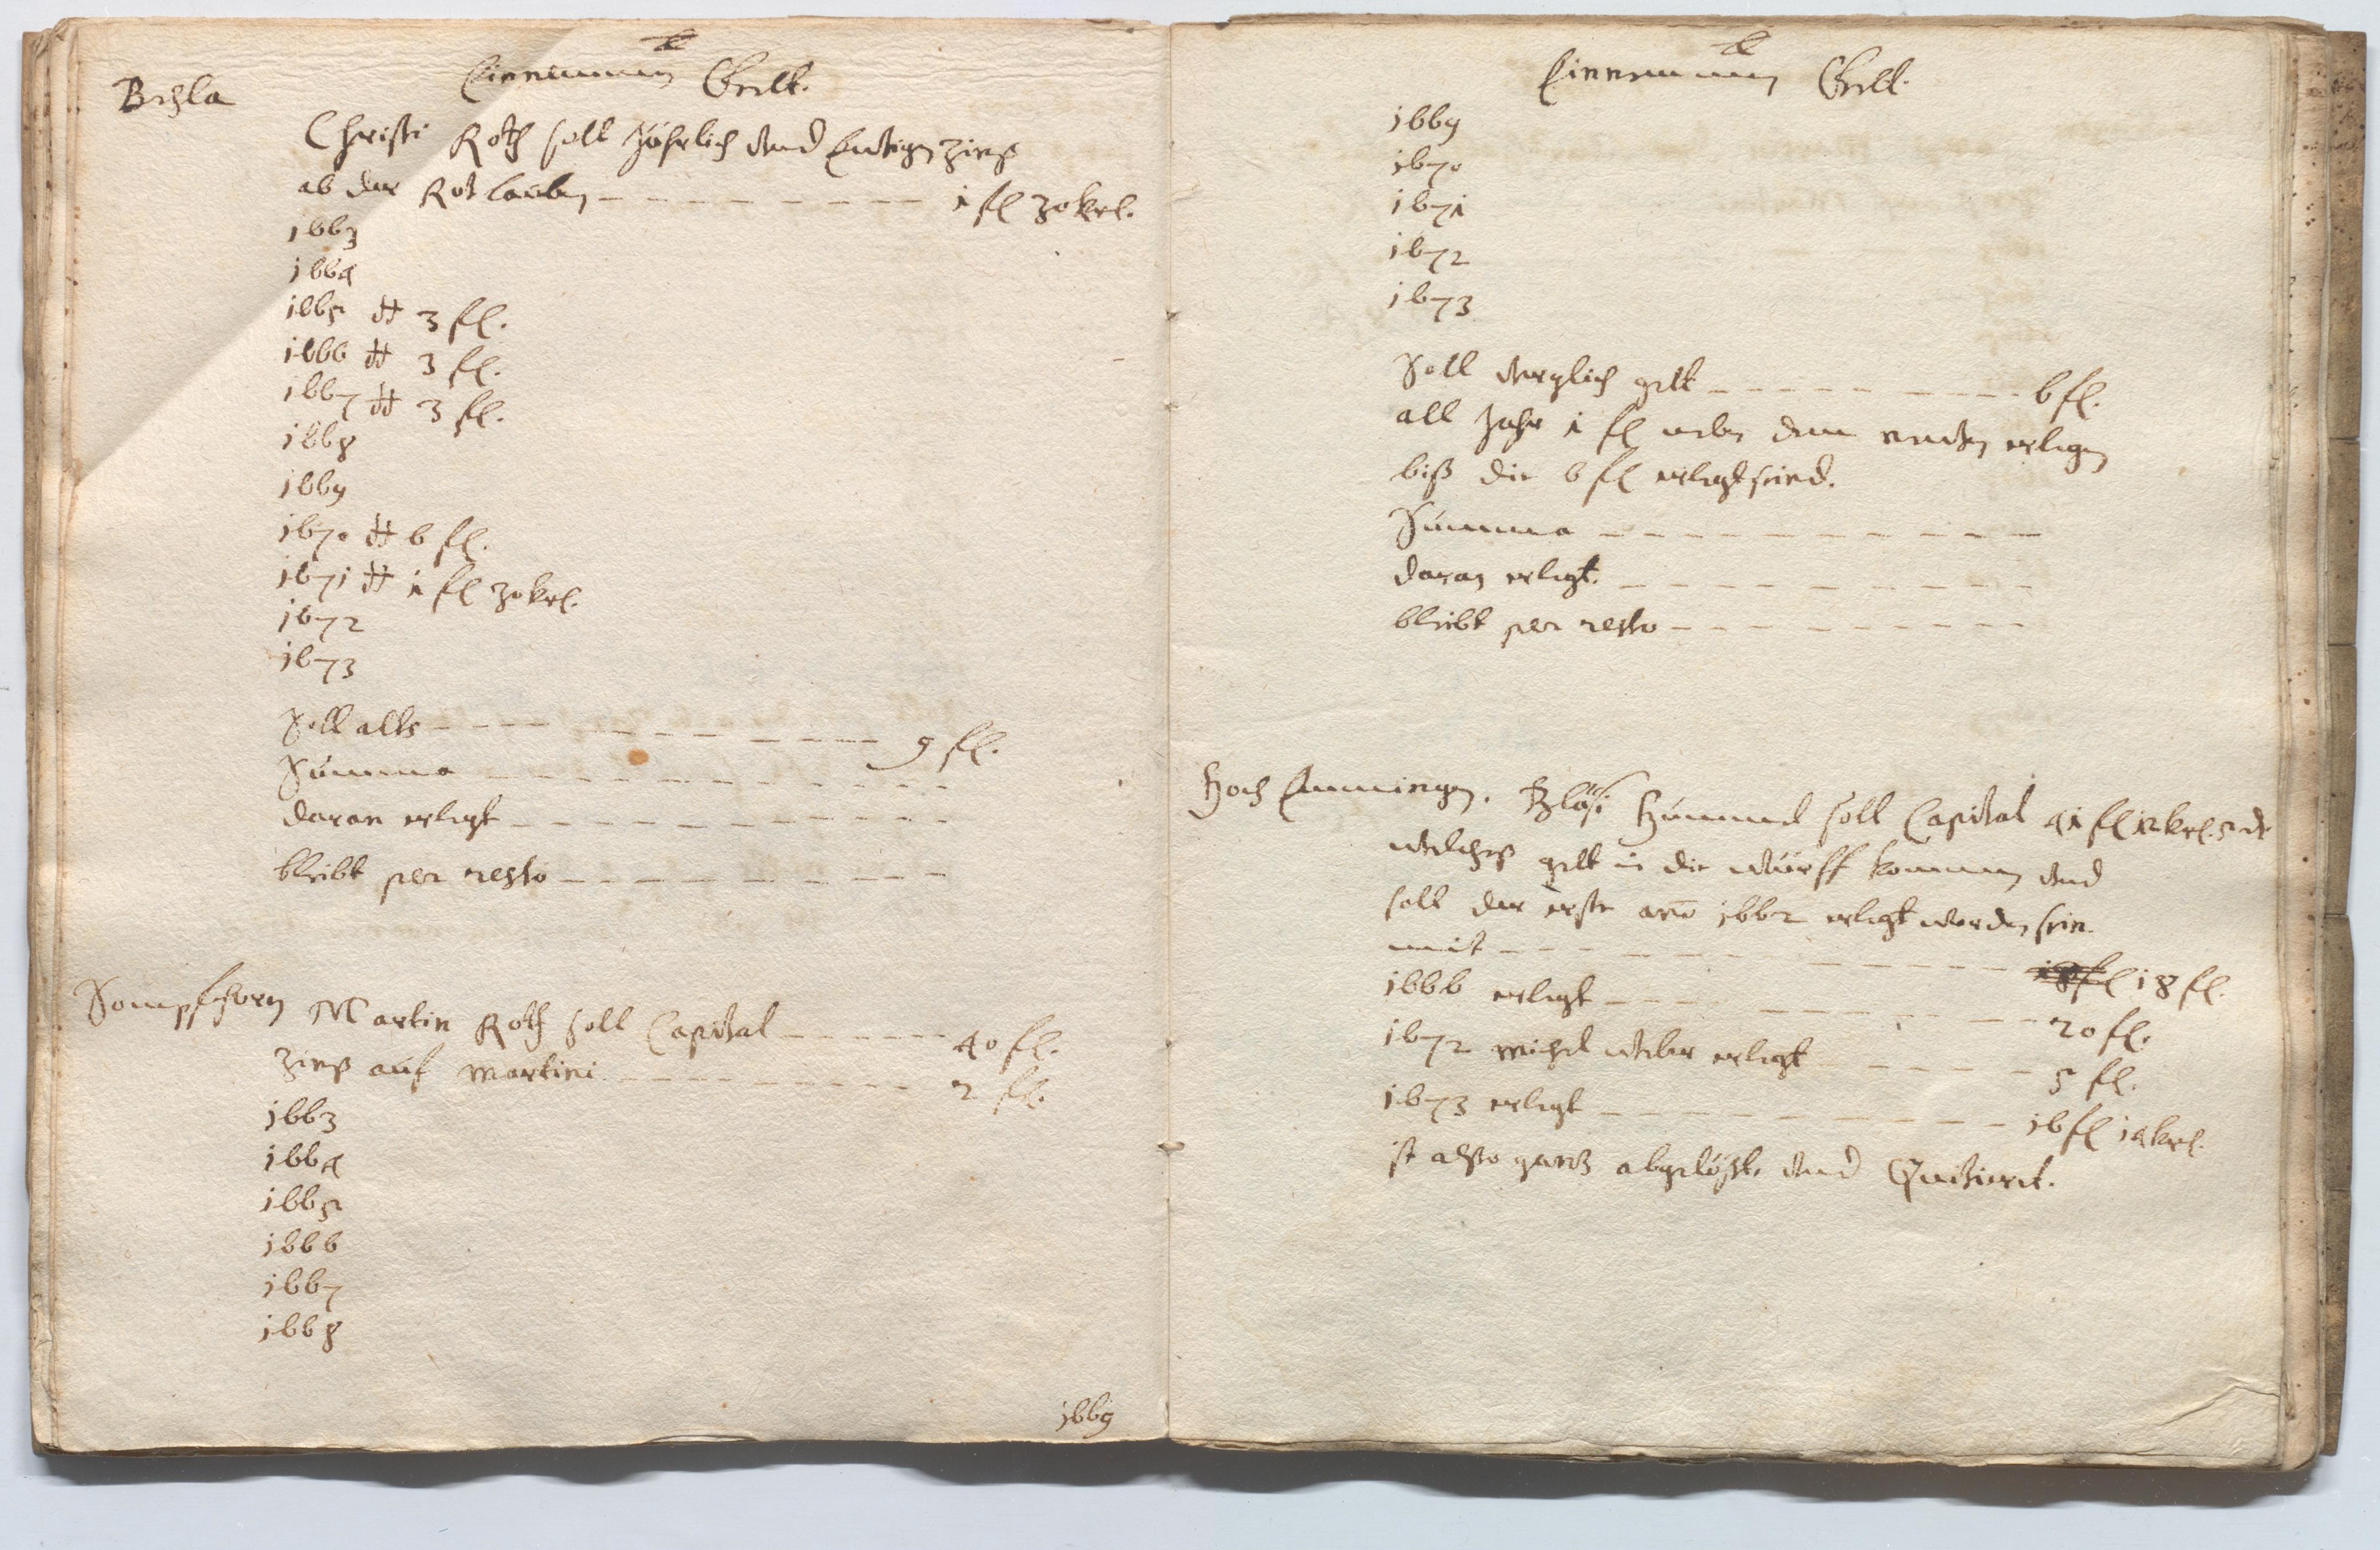 Einnemmen Gelt.
Behla
Christi Roth soll Jährlich vnd Ewigen Zinß
ab der Rotlauben — 1 fl 30 krl.
1663
1664
1665 dt 3 fl.
1666 dt 3 fl.
1667 dt 3 fl.
1668
1669
1670 dt 6 fl.
1671 dt 1 fl 30 krl.
1672
1673
Soll alts — 9 fl.
Summa —
daran erlegt —
bleibt per resto —
Sompfohren Martin Roth soll Capital — 40 fl.
Zinß auf Martini — 2 fl.
1663
1664
1665
1666
1667
1668
1669
Einnemmen Gelt.
1669
1670
1671
1672
1673
Soll verglich gelt — 6 fl.
all Jahr 1 fl neben dem erlegen
biß die 6 fl erlegt seind.
Summa —
daran erlegt. —
bleibt per resto —
Hoch Emmingen. Bläsi Hummel soll Capital 41 fl 12 krl.
welcheß gelt in die würff kommen vnd
soll der erste año 1662 erlegt worden sein
mit — 18 fl 18 fl.
1666 erlegt — 20 fl.
1672 Michel weber erlegt — 5 fl.
1673 erlegt — 16 fl 14 krl.
ist alßo gantz abgelößt vnd Quitiert.